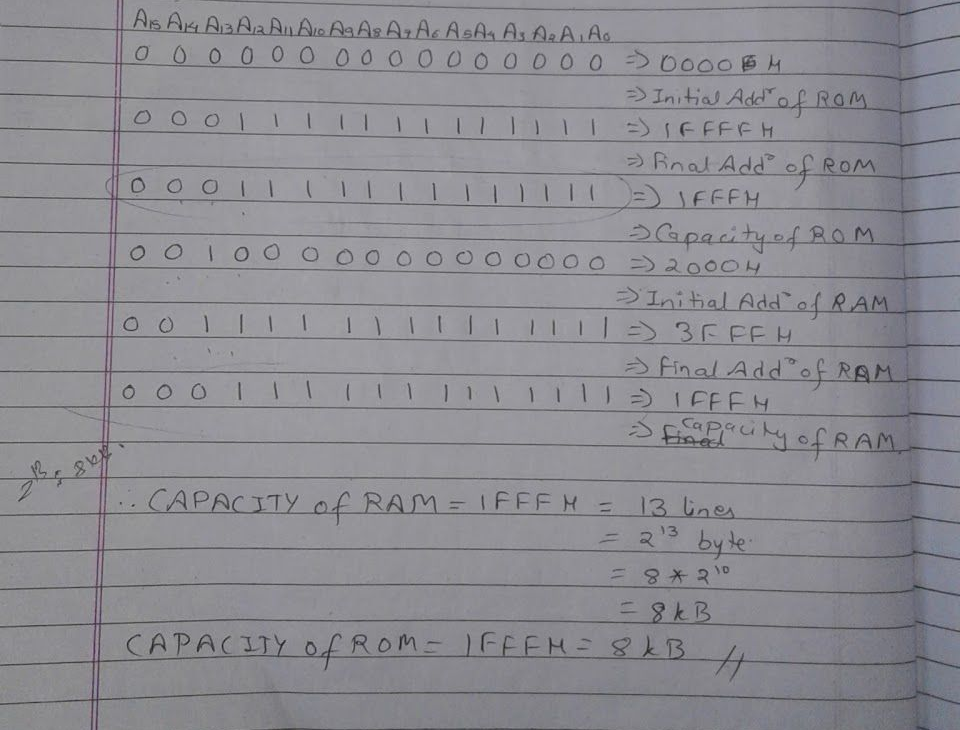 A15 A14 A13 A12 A11 A10 A9 A8 A7 A6 A5 A4 A3 A2 A1 A0
0 0 0 0 0 0 0 0 0 0 0 0 0 0 0 0 => 0000 H
=> Initial Addr of ROM
0 0 0 1 1 1 1 1 1 1 1 1 1 1 1 1 => 1FFFFH
=> Final Addr of ROM
0 0 0 1 1 1 1 1 1 1 1 1 1 1 1 1 => 1FFFH
=> Capacity of ROM
0 0 1 0 0 0 0 0 0 0 0 0 0 0 0 0 => 2000H
=> Initial Addr of RAM
0 0 1 1 1 1 1 1 1 1 1 1 1 1 1 1 => 3FFFH
=> Final Addr of RAM
0 0 0 1 1 1 1 1 1 1 1 1 1 1 1 1 => 1FFFH
=> Capacity of RAM
∴ CAPACITY of RAM = 1FFFH = 13 lines
= 2¹³ byte
= 8 * 2¹⁰
= 8kB
CAPACITY of ROM = 1FFFH = 8kB //